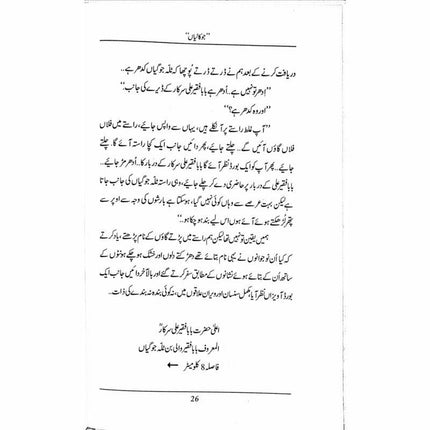 "جوکالیاں"
دریافت کرنے کے بعد ہم نے ڈرتے ڈرتے پوچھا کہ ٹلہ جوگیاں کدھر ہے..
"ادھر تو نہیں ہے.. اُدھر ہے بابا فقیر علی سرکار کے ڈیرے کی جانب."
"اور وہ کدھر ہے؟"
"آپ غلط راستے پر آ نکلے ہیں، یہاں سے واپس جائیے، راستے میں فلاں
فلاں گاؤں آئیں گے.. چلتے جائیے، پھر دائیں جانب ایک کچا راستہ آئے گا.. چلتے
جائیے.. پھر آپ کو ایک بورڈ نظر آئے گا بابا فقیر علی سرکار کے دربار کا.. اُدھر مڑ جائیے..
بابا فقیر علی کے دربار پر حاضری دے کر چلے جائیے، وہی راستہ ٹلہ جوگیاں کی جانب جاتا
ہے لیکن بہت عرصے سے وہاں کوئی نہیں گیا، ہو سکتا ہے بارشوں کی وجہ سے اوپر سے
پتھر لڑھکتے ہوئے آئے ہوں اس لیے بند ہو چکا ہو.."
ہمیں یقین تو نہیں تھا لیکن ہم راستے میں پڑتے گاؤں کے نام پڑھتے، یاد کرتے
کہ کیا اُن نوجوانوں نے یہی نام بتائے تھے دھڑکتے دلوں اور خشک ہو چکے ہونٹوں کے
ساتھ اُن کے بتائے ہوئے نشانوں کے مطابق سفر کرتے گئے اور بالآخر دائیں جانب ایک
بورڈ آویزاں نظر آیا، مکمل سنسان اور ویران علاقوں میں، نہ کوئی بندہ نہ بندے کی ذات..
اعلیٰ حضرت بابا فقیر علی سرکارؒ
المعروف بابا فقیر والی بن ٹلہ جوگیاں
فاصلہ 8 کلومیٹر ←
26